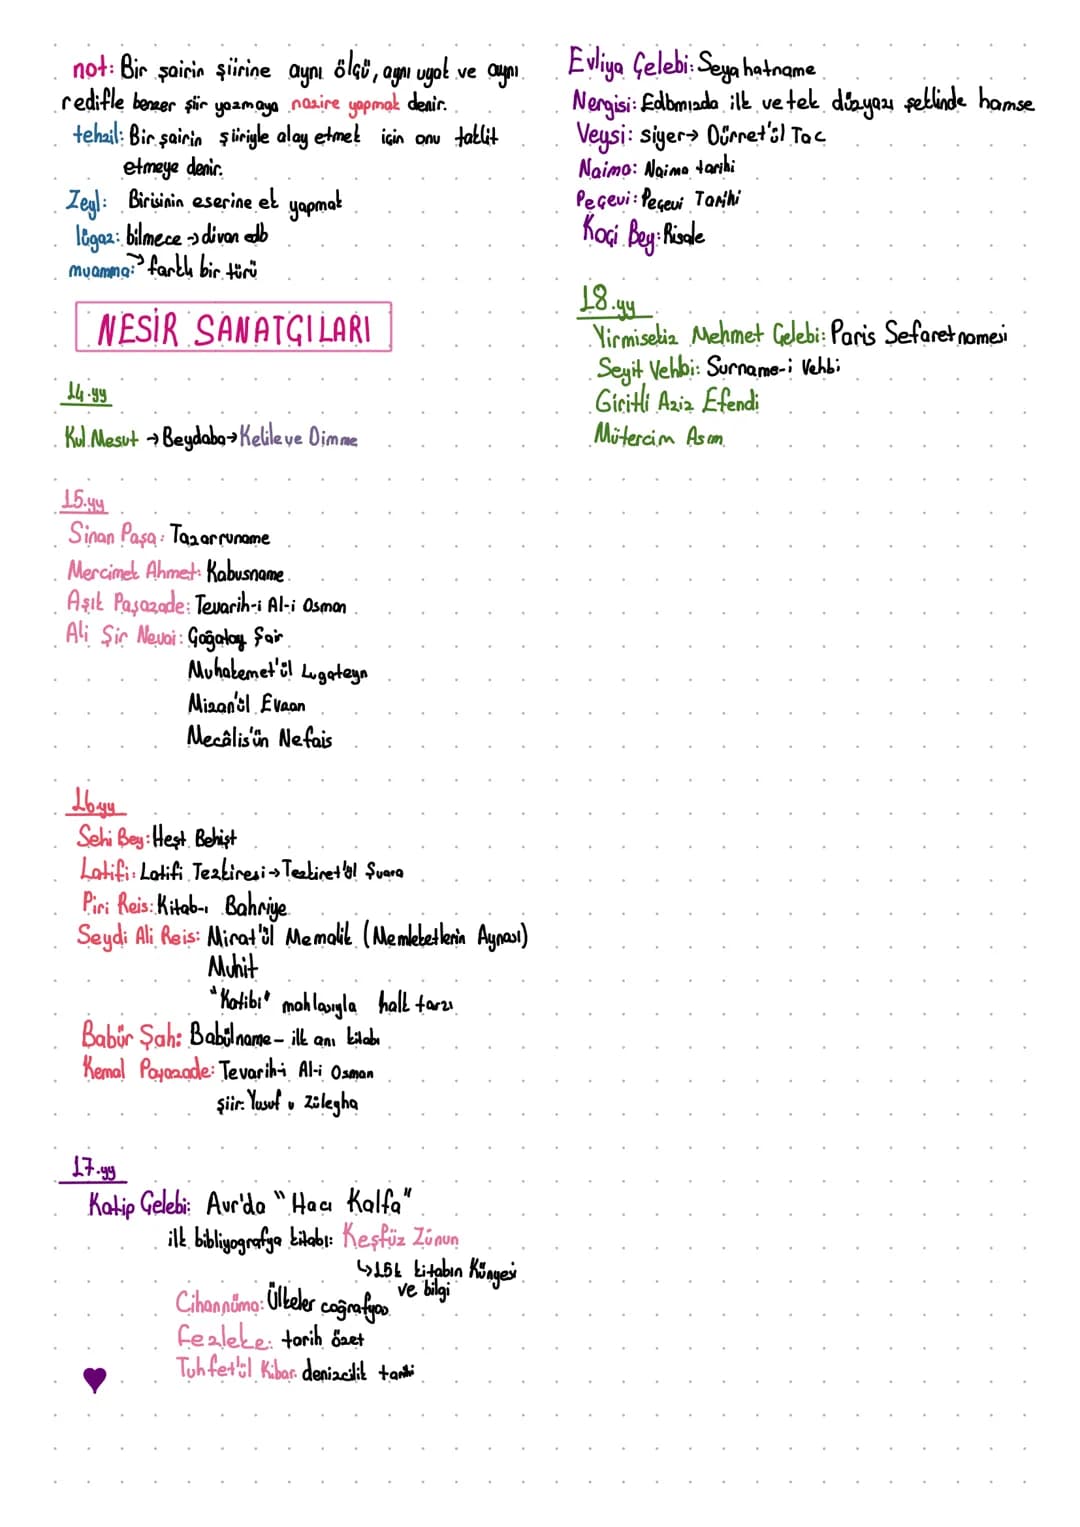 not: Bir şairin şiirine aynı ölçü, aynı uyak ve aynı
redifle benzer şiir yazmaya nazire yapmak denir.
tehzil: Bir şairin şiiriyle alay etmek için onu taklit
etmeye denir.
Zeyl: Birisinin eserine ek yapmak
lügaz: bilmece → divan edb
muamma: → farklı bir türü
NESİR SANATÇILARI
14.yy
Kul Mesut → Beydaba → Kelile ve Dimme
15.yy
Sinan Paşa: Tazarruname
Mercimek Ahmet: Kabusname
Aşık Paşazade: Tevarih-i Al-i Osman
Ali Şir Nevai: Çağatay Şair
Muhakemet'ül Lugateyn
Mizan'ül Evzan
Mecâlis'ün Nefais
16.yy
Sehi Bey: Heşt Behişt
Latifi: Latifi Tezkiresi → Tezkiret'ül Şuara
Piri Reis: Kitab-ı Bahriye
Seydi Ali Reis: Mirat'ül Memalik (Memleketlerin Aynası)
Muhit
"Katibi" mahlasıyla halk tarzı
Babür Şah: Babülname - ilk anı kitabı
Kemal Paşazade: Tevarih-i Al-i Osman
şiir: Yusuf u Züleyha
17.yy
Katip Çelebi: Avr'da "Hacı Kalfa"
ilk bibliyografya kitabı: Keşfüz Zünun
↳ 15k kitabın Künyesi
ve bilgi
Cihannüma: Ülkeler coğrafyası
Fezleke: tarih özet
Tuhfet'ül Kibar: denizcilik tarihi
Evliya Çelebi: Seyahatname
Nergisi: Edbmızda ilk ve tek düzyazı şeklinde hamse
Veysi: siyer → Dürret'ül Tac
Naima: Naima tarihi
Peçevi: Peçevi Tarihi
Koçi Bey: Risale
18.yy
Yirmisekiz Mehmet Çelebi: Paris Sefaretnamesi
Seyit Vehbi: Surname-i Vehbi
Giritli Aziz Efendi
Mütercim Asım